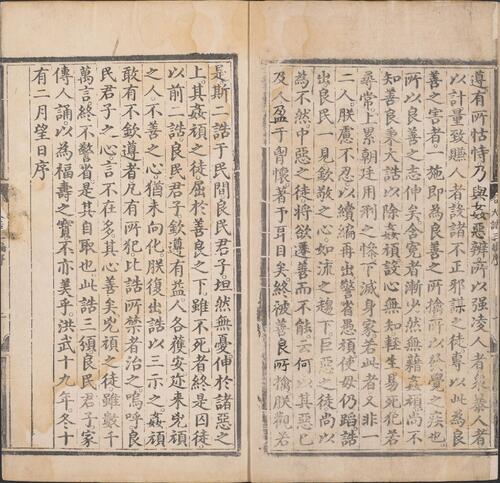 遵有所怙恃乃與姦惡辨所以强凌人者衆暴人者
以計量致賺人者設諸不正邪謀之徒專以此為良
善之害者一施即為良善之所擒所以發覺之疾也
所以良善之志伸矣含寃者漸少然無藉姦頑尚不
知善良秉大誥以除姦頑設心無知輕生易死犯若
尋常上累朝廷用刑之慘下滅身家若此者又非一
二人朕慮不忍以續編再出警省愚頑使毋仍蹈誥
出良民一見欽敬之心如流之趨下巨惡之徒尚以
為不然中惡之徒將欲遷善而不能云何以其惡已
及人盈于胷懷著于耳目矣終被善良所擒朕觀若
是斯二誥于民間良民君子坦然無憂伸於諸惡之
上其姦頑之徒屈於善良之下雖不死者終是囚徒
以前二誥良民君子欽遵有益人各獲安邇来兇頑
之人不善之心猶未向化朕復出誥以三示之姦頑
敢有不欽遵者凡有所犯比誥所禁者治之嗚呼良
民君子之心言不在多其心善矣兇頑之徒雖數千
萬言終不警省是其自取也此誥三頒良民君子家
傳人誦以為福壽之寶不亦美乎洪武十九年冬十
有二月望日序